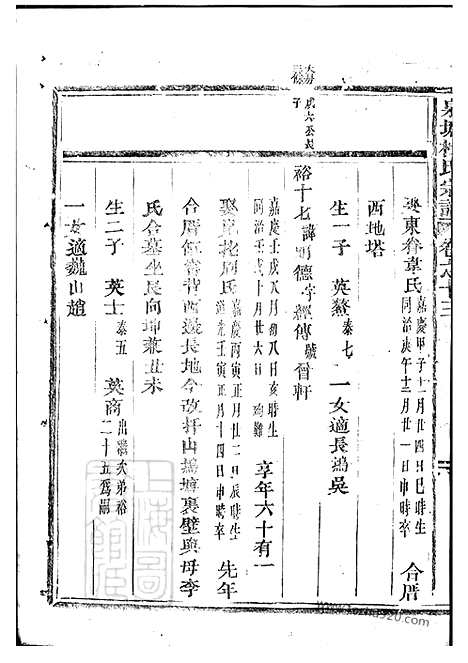 泉塘楊氏宗譜 卷之十三
娶東眷韋氏 嘉慶甲子十一月廿四日巳時生 同治庚午十二月廿一日申時卒 合厝
西地塔
生一子 英鰲 泰七 一女適長鴻吳
裕十七 諱明德 字經傳 號晉軒
嘉慶壬戌八月初八日亥時生 同治壬戌十月廿六日 殉難 享年六十有一
娶 周氏 嘉慶丙寅正月廿二日辰時生 道光壬寅正月十四日申時卒 先年
合厝 西邊長地今改扦山塢塘裏壁與母李
氏合墓坐艮向坤兼丑未
生二子 英士 泰五 英商 出繼次弟裕二十五為嗣
一女適巃山趙
www.jiapu1920.com